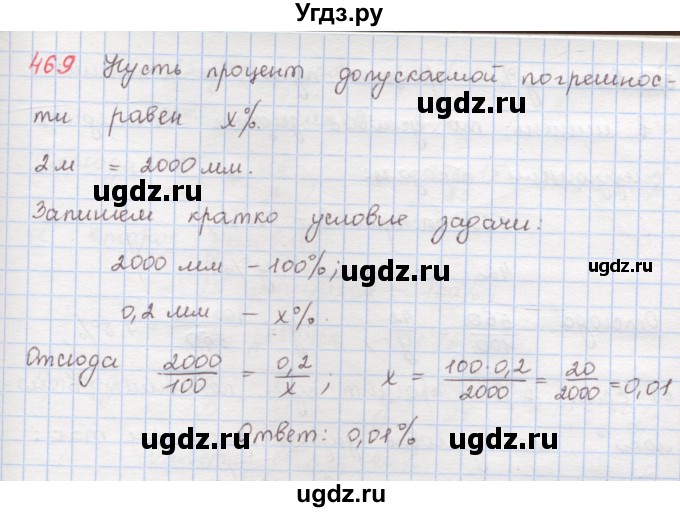 Угдз.ру
469 Пусть процент допускаемой погрешнос-
ugdz.ru ugdz.ru
ти равен x%.
2м = 2000мм.
ugdz.ru
Запишем кратко условие задачи:
2000 мм – 100%;
ugdz.ru ugdz.ru
0,2 мм – x%.
Отсюда 2000/100 = 0,2/x; x = 100·0,2/2000 = 20/2000 = 0,01
ugdz.ru ugdz.ru
Ответ: 0,01%
ugdz.ru